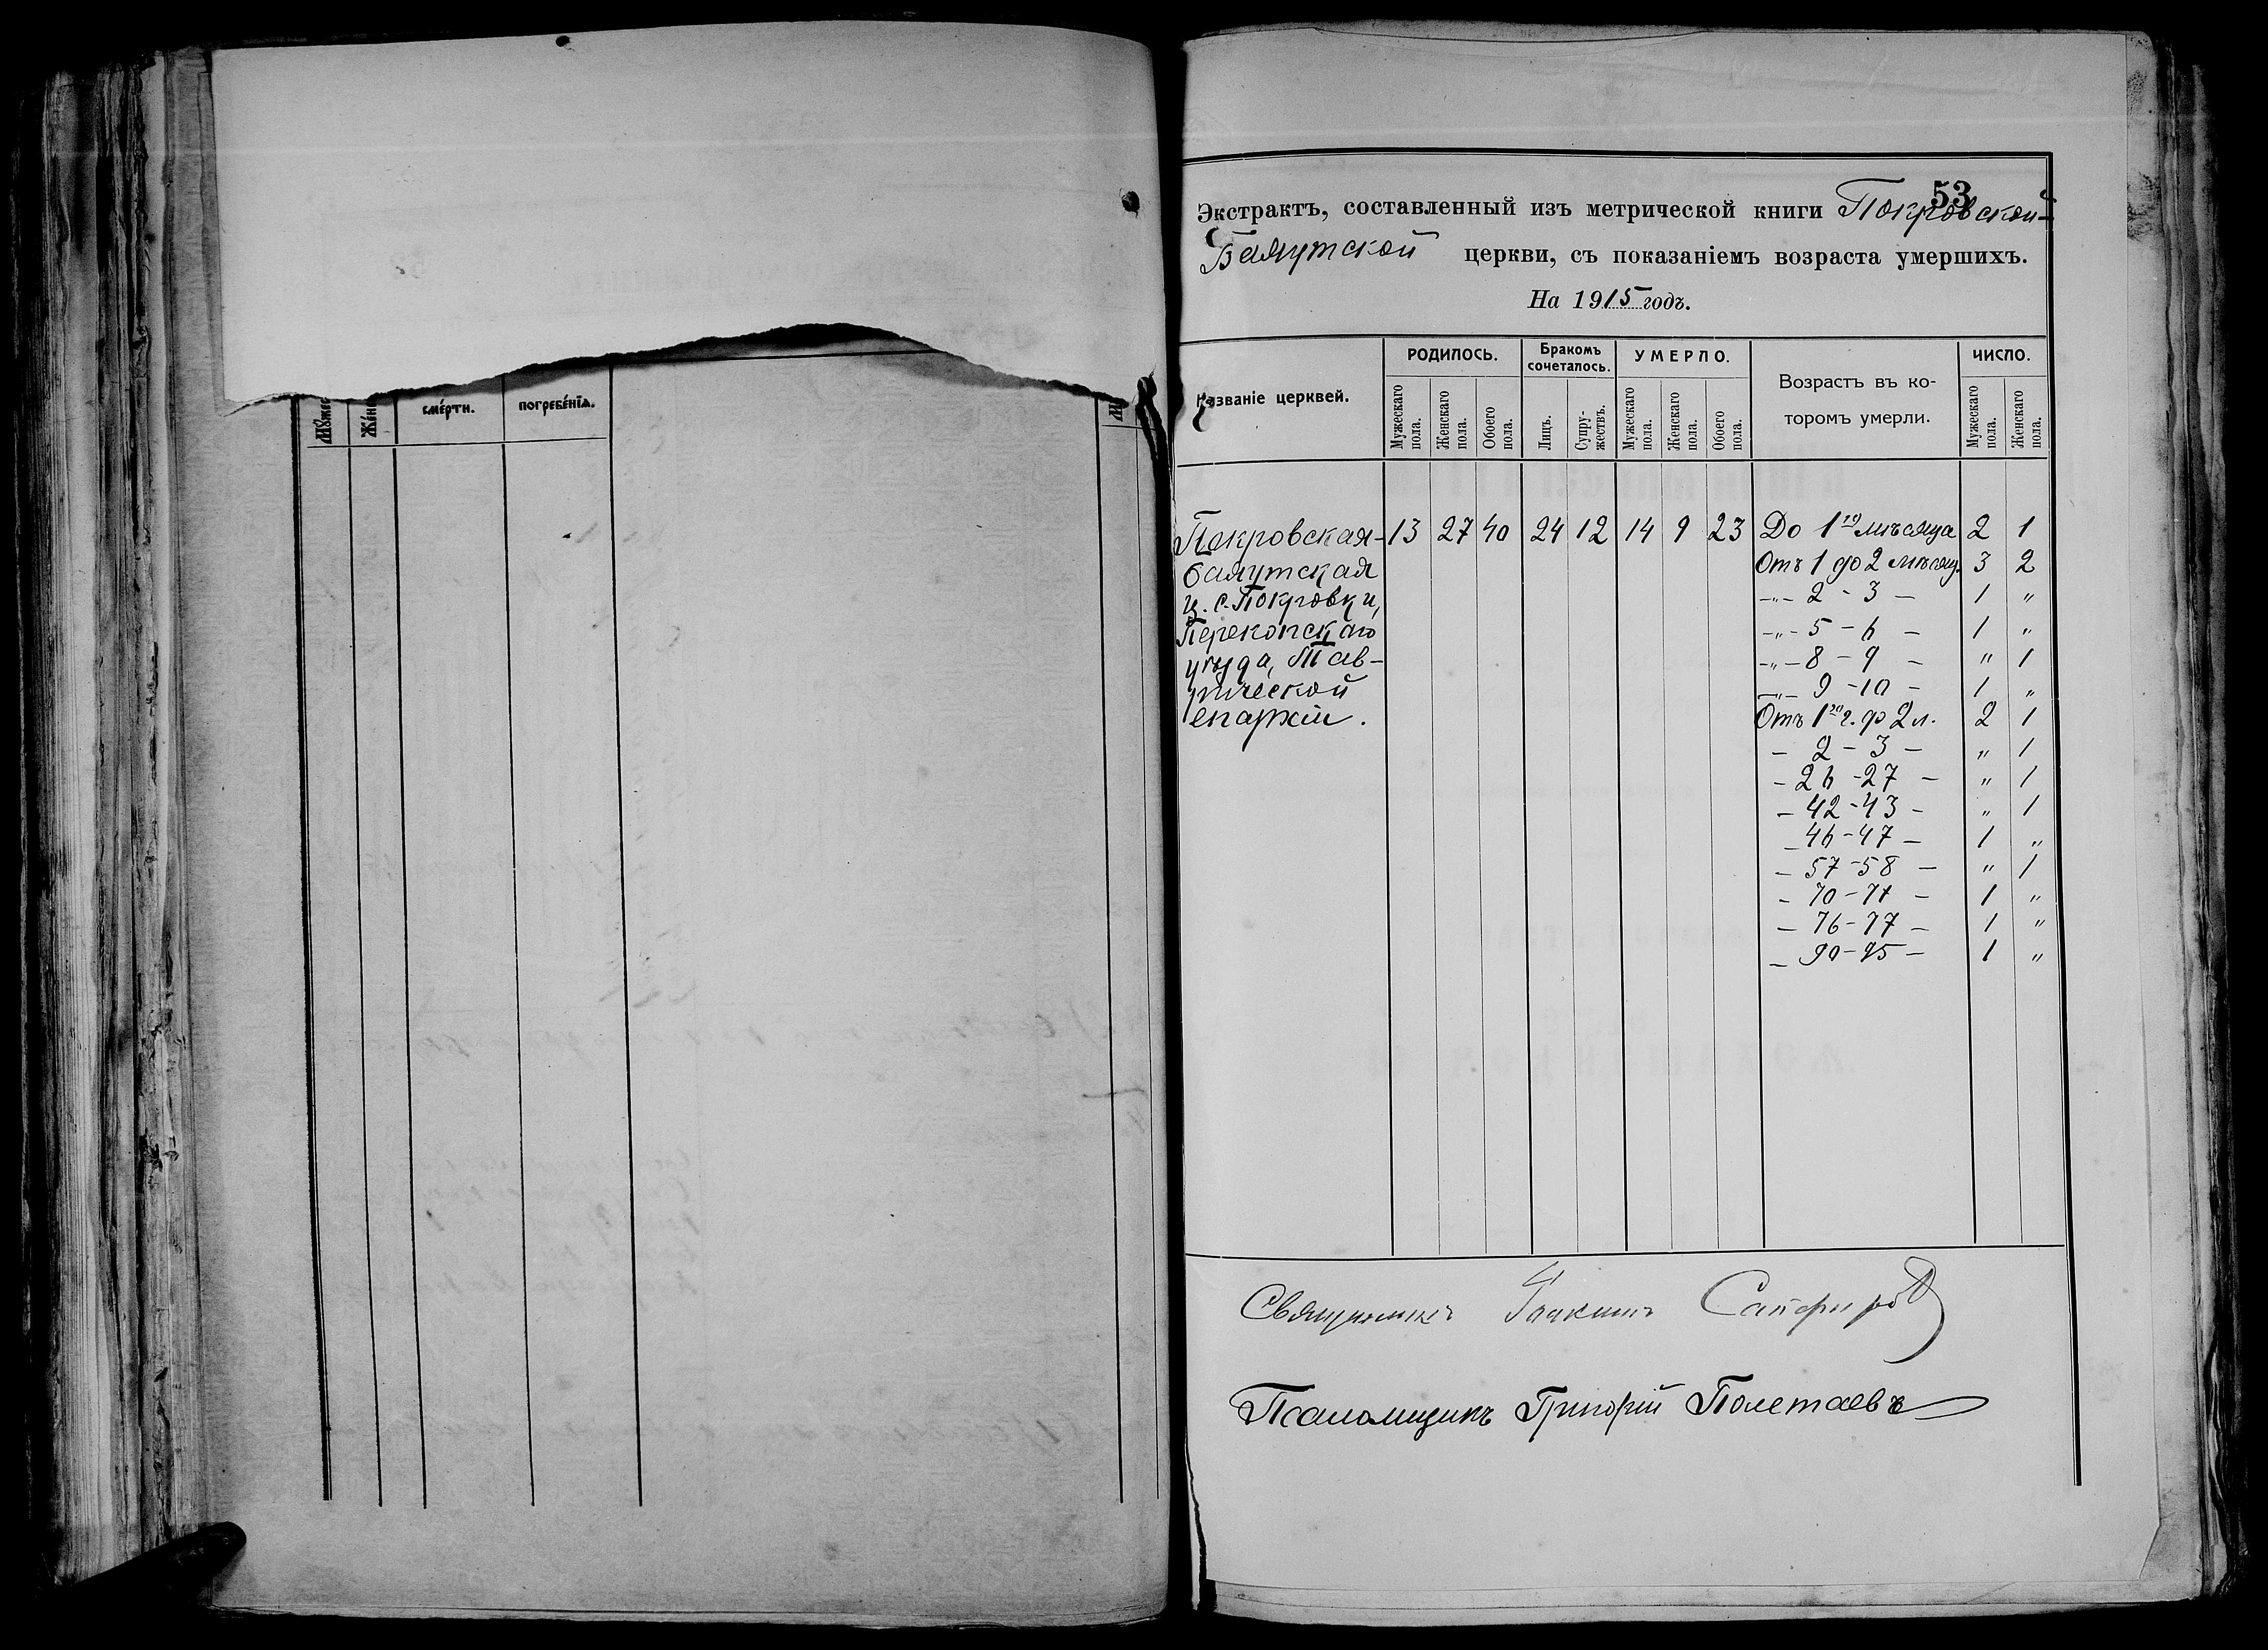 смéрти.
погребéнїѧ.
53
Экстрактъ, составленный изъ метрической книги Покровской-
Баяутской церкви, съ показаніемъ возраста умершихъ.
На 1915 годъ.
Названіе церквей.
РОДИЛОСЬ.
Бракомъ
сочеталось.
УМЕРЛО.
Возрастъ въ ко-
торомъ умерли.
ЧИСЛО.
Мужескаго
пола.
Женскаго
пола.
Обоего
пола.
Лицъ.
Супру-
жествъ.
Мужескаго
пола.
Женскаго
пола.
Обоего
пола.
Мужескаго
пола.
Женскаго
пола.
Покровская- 13 27 40 24 12 14 9 23 До 1го мѣсяца 2 1
баяутская Отъ 1 до 2 мѣсяц. 3 2
ц. с. Покровки, -„- 2 - 3 - 1 „
Перекопскаго -„- 5 - 6 - 1 „
уѣзда, Тав- -„- 8 - 9 - „ 1
рической -„- 9 - 10 - 1 „
епархіи. Отъ 1го г. до 2 л. 2 1
- 2 - 3 - „ 1
- 26 - 27 - „ 1
- 42 - 43 - „ 1
- 46 - 47 - 1 „
- 57 - 58 - „ 1
- 70 - 71 - 1 „
- 76 - 77 - 1 „
- 90 - 95 - 1 „
Священникъ Іоакимъ Сапфиров
Псаломщикъ Григорій Полетаевъ